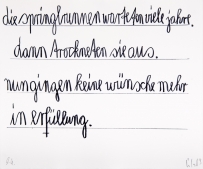 die springbrunnen warteten viele jahre.
dann trockneten sie aus.
nun gingen keine wünsche mehr
in erfüllung.